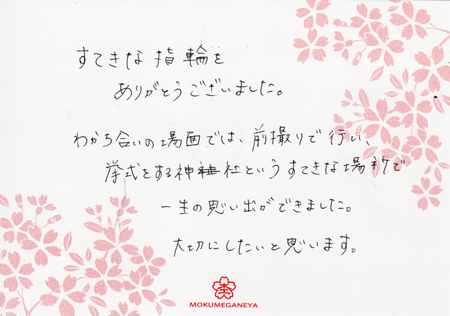 すてきな指輪を
ありがとうございました。
わかち合いの場面では、前撮りで行い、
挙式をする神社というすてきな場所で
一生の思い出ができました。
大切にしたいと思います。
MOKUMEGANEYA